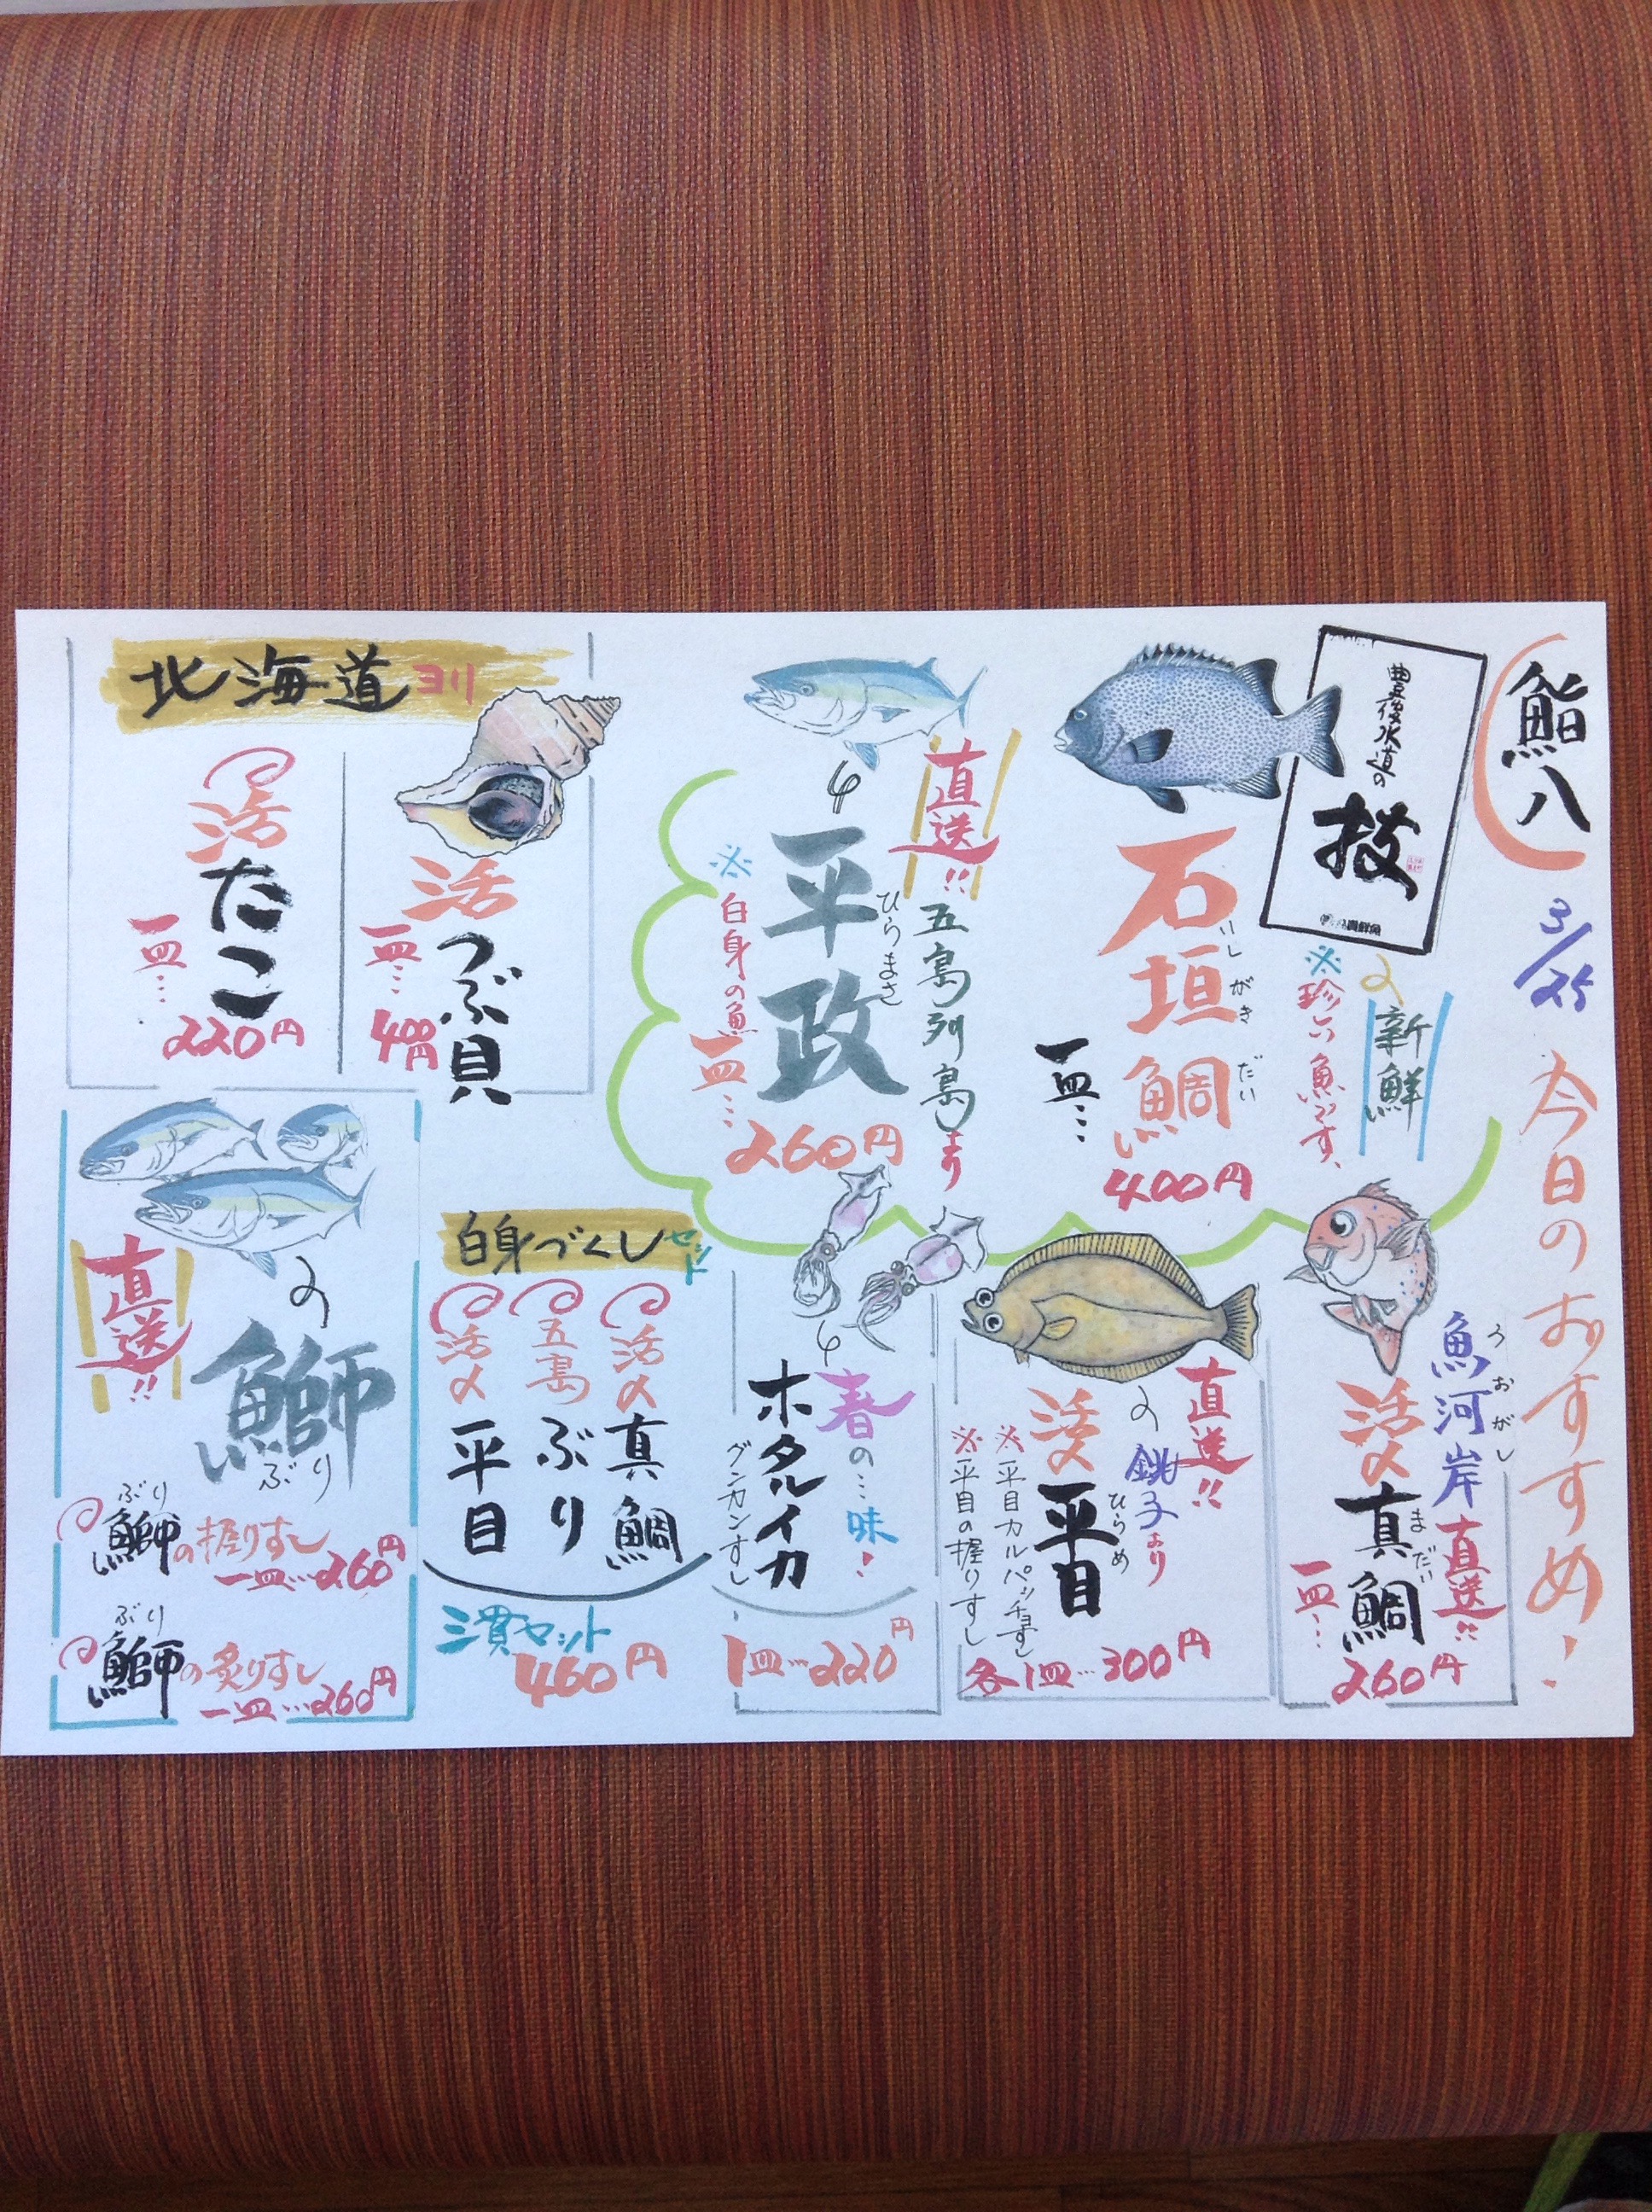 鮨八
3/25
今日のおすすめ!
豊後水道の
技
新鮮
※珍しい魚です、
石垣鯛
いしがきだい
一皿…
400円
直送!!
五島列島より
平政
ひらまさ
※白身の魚
一皿…
260円
北海道ヨリ
活つぶ貝
一皿…
400円
活たこ
一皿…
220円
魚河岸
うおがし
直送!!
活〆
真鯛
まだい
一皿…
260円
直送!!
銚子より
活〆
平目
ひらめ
※平目カルパッチョすし
※平目の握りすし
各1皿…300円
春の…味!
ホタルイカ
グンカンすし
1皿…220円
白身づくしセット
活〆真鯛
五島ぶり
活〆平目
三貫セット
460円
直送!!
鰤
ぶり
ぶり
鰤の握りすし
一皿…260円
ぶり
鰤の炙りすし
一皿…260円